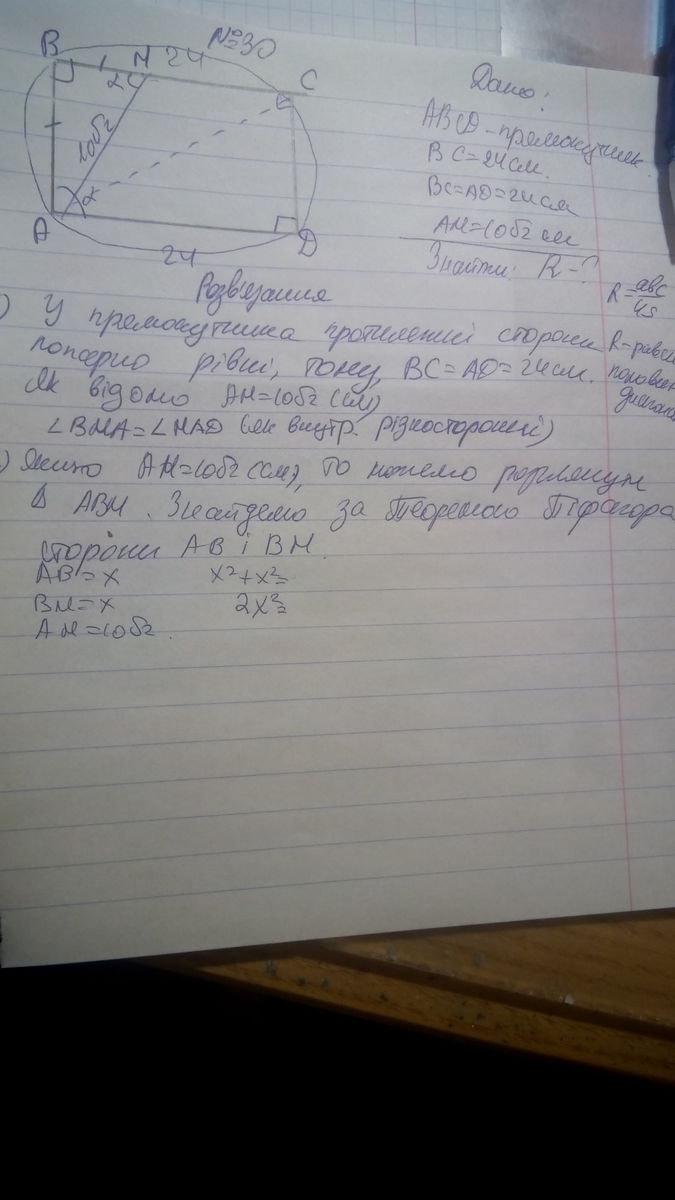 №30
B
M
24
C
α
10√2
α
A
24
D
Дано:
ABCD - прямокутник.
BC=24 см.
BC=AD=24 см
AM=10√2 см
Знайти: R-?
R=abc/4S
Розв'язання
) У прямокутника протилежні сторони
попарно рівні, тому, BC=AD=24 см.
Як відомо AM=10√2 (см)
∠BMA=∠MAD (як внутр. різносторонні)
) Якщо AM=10√2 (см), то можемо розглянути
Δ ABM. Знайдемо за теоремою Піфагора
сторони AB і BM.
AB=x x²+x²=
BM=x 2x²=
AM=10√2.